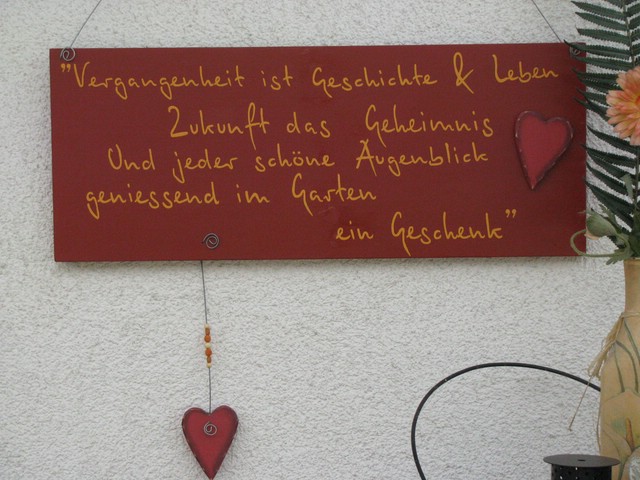 "Vergangenheit ist Geschichte & Leben
Zukunft das Geheimnis
Und jeder schöne Augenblick
geniessend im Garten
ein Geschenk"